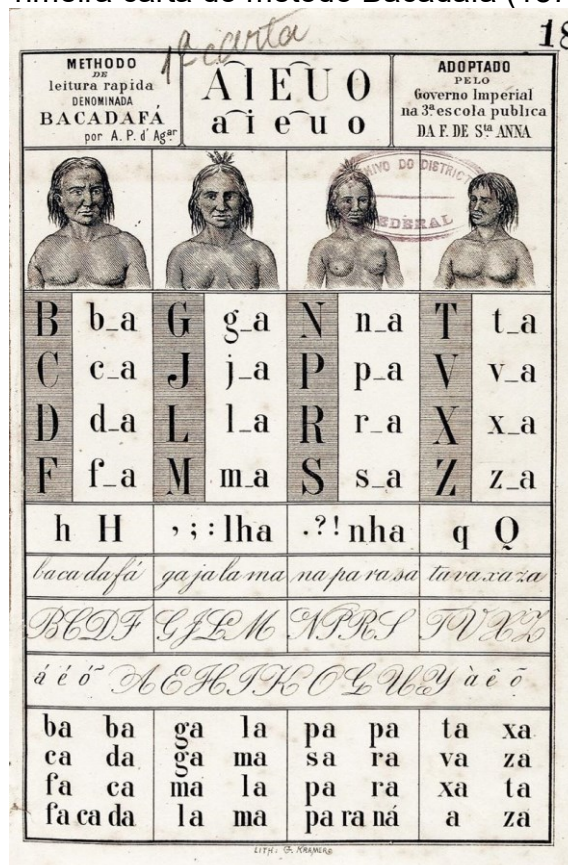 rimeira carta do método Bacadafá (187
1ª carta
18
METHODO
DE
leitura rapida
DENOMINADA
BACADAFÁ
por A. P. d' Agar
A I E U O
a i e u o
ADOPTADO
PELO
Governo Imperial
na 3ª escola publica
DA F. DE Sta ANNA
DO DISTRIC
FEDERAL
B b_a G g_a N n_a T t_a
C c_a J j_a P p_a V v_a
D d_a L l_a R r_a X x_a
F f_a M m_a S s_a Z z_a
h H , ; : lha . ? ! nha q Q
baca da fá ga ja la ma na pa ra sa ta va xa za
B C D F G J L M N P R S T V X Z
á é ó ~ A E H I K O G U Y à ê õ
ba ba ga la pa pa ta xa
ca da ga ma sa ra va za
fa ca ma la pa ra xa ta
fa ca da la ma pa ra ná a za
LITH: G. KRAMER